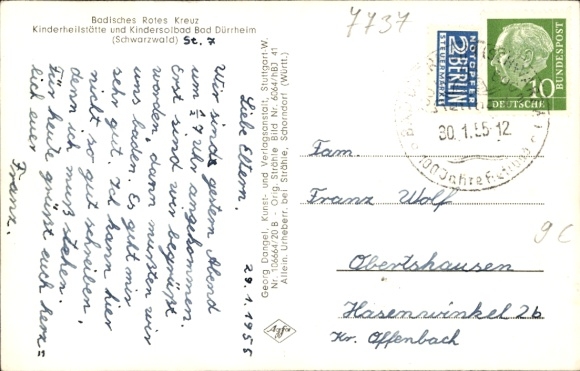 Badisches Rotes Kreuz
Kinderheilstätte und Kindersolbad Bad Dürrheim
(Schwarzwald) St. 7
29.1.1955
Liebe Eltern.
Wir sind gestern Abend
um ½ 7 Uhr angekommen.
Erst sind wir begrüßt
worden, dann mussten wir
uns baden. Es geht mir
sehr gut. Ich kann hier
nicht so gut schreiben,
denn ich muß stehen.
Für heute grüßt euch herz=
lich euer
Franz.
Georg Dangel, Kunst- und Verlagsanstalt, Stuttgart-W.
Nr. 106664/20 B - Orig. Strähle Bild Nr. 6064/hBJ 41
Allein. Urheberr. bei Strähle, Schorndorf (Württ.)
Agfa
7737
NOTOPFER
2 BERLIN
STEUERMARKE
DEUTSCHE
BUNDESPOST
10
30.1.55-12
Fam.
Franz Wolf
9 C
Obertshausen
Hasenwinkel 2b
Kr. Offenbach